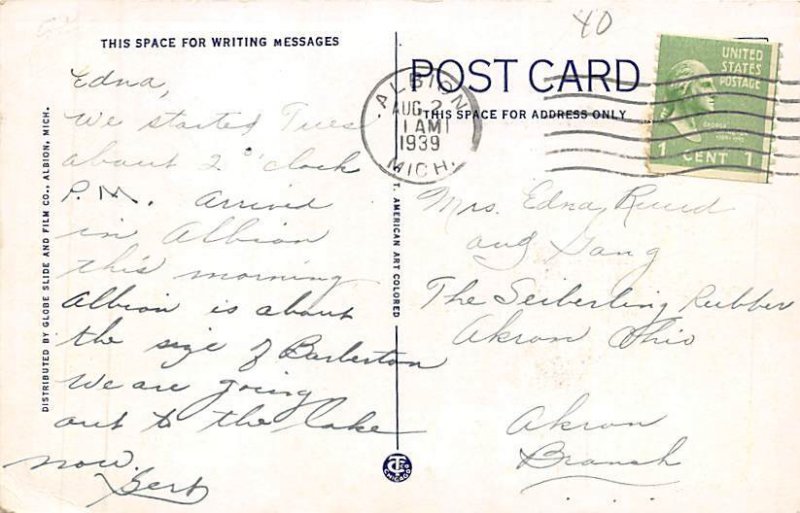 THIS SPACE FOR WRITING MESSAGES
Edna,
We started Tues
about 2 o'clock
P.M. Arrived
in Albion
this morning
Albion is about
the size of Barberton
We are going
out to the lake
now.
Gert
DISTRIBUTED BY GLOBE SLIDE AND FILM CO., ALBION, MICH.
T. AMERICAN ART COLORED
CHICAGO
40
POST CARD
THIS SPACE FOR ADDRESS ONLY
ALBION
AUG 2
1 AM
1939
MICH.
UNITED
STATES
POSTAGE
1 CENT 1
Mrs. Edna
and Gang
The Seiberling Rubber
Akron Ohio
Akron
Branch